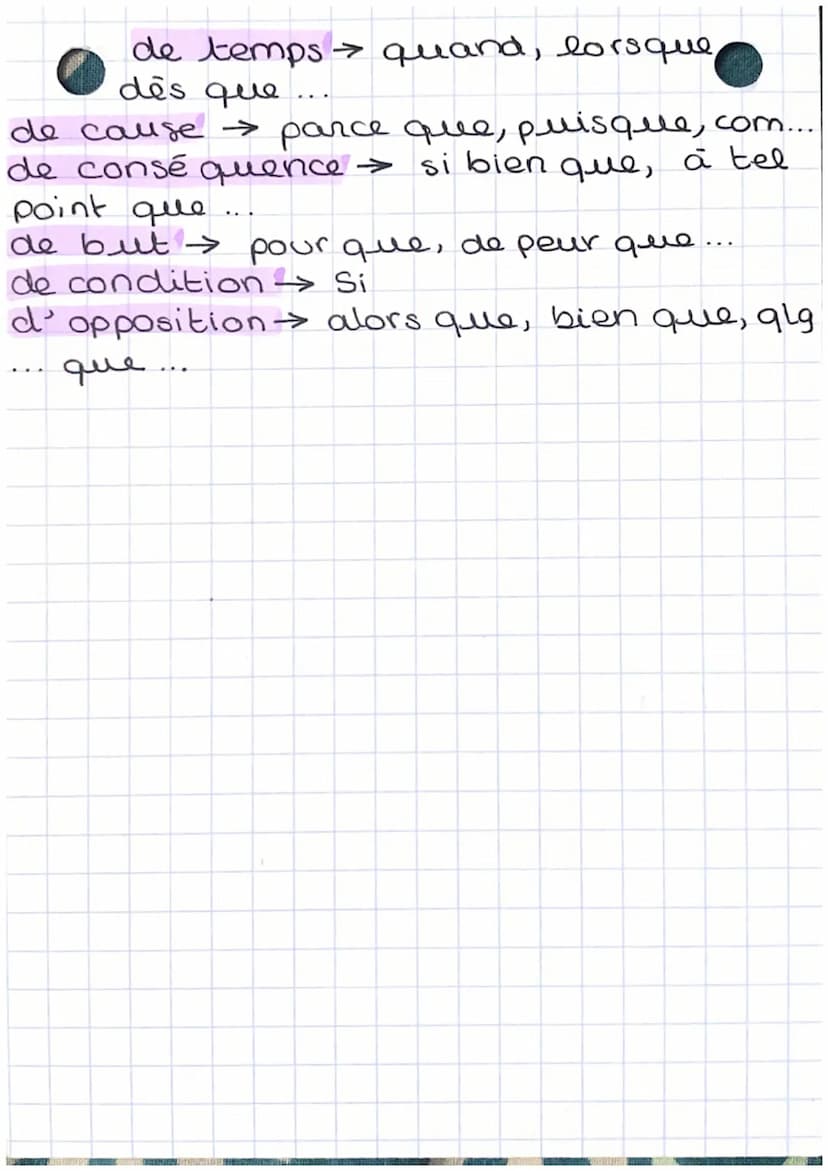 de temps → quand, lorsque
dès que ...
de cause → parce que, puisque, com...
de conséquence → si bien que, à tel
point que ...
de but → pour que, de peur que ...
de condition → Si
d'opposition → alors que, bien que, qlq
... que ...